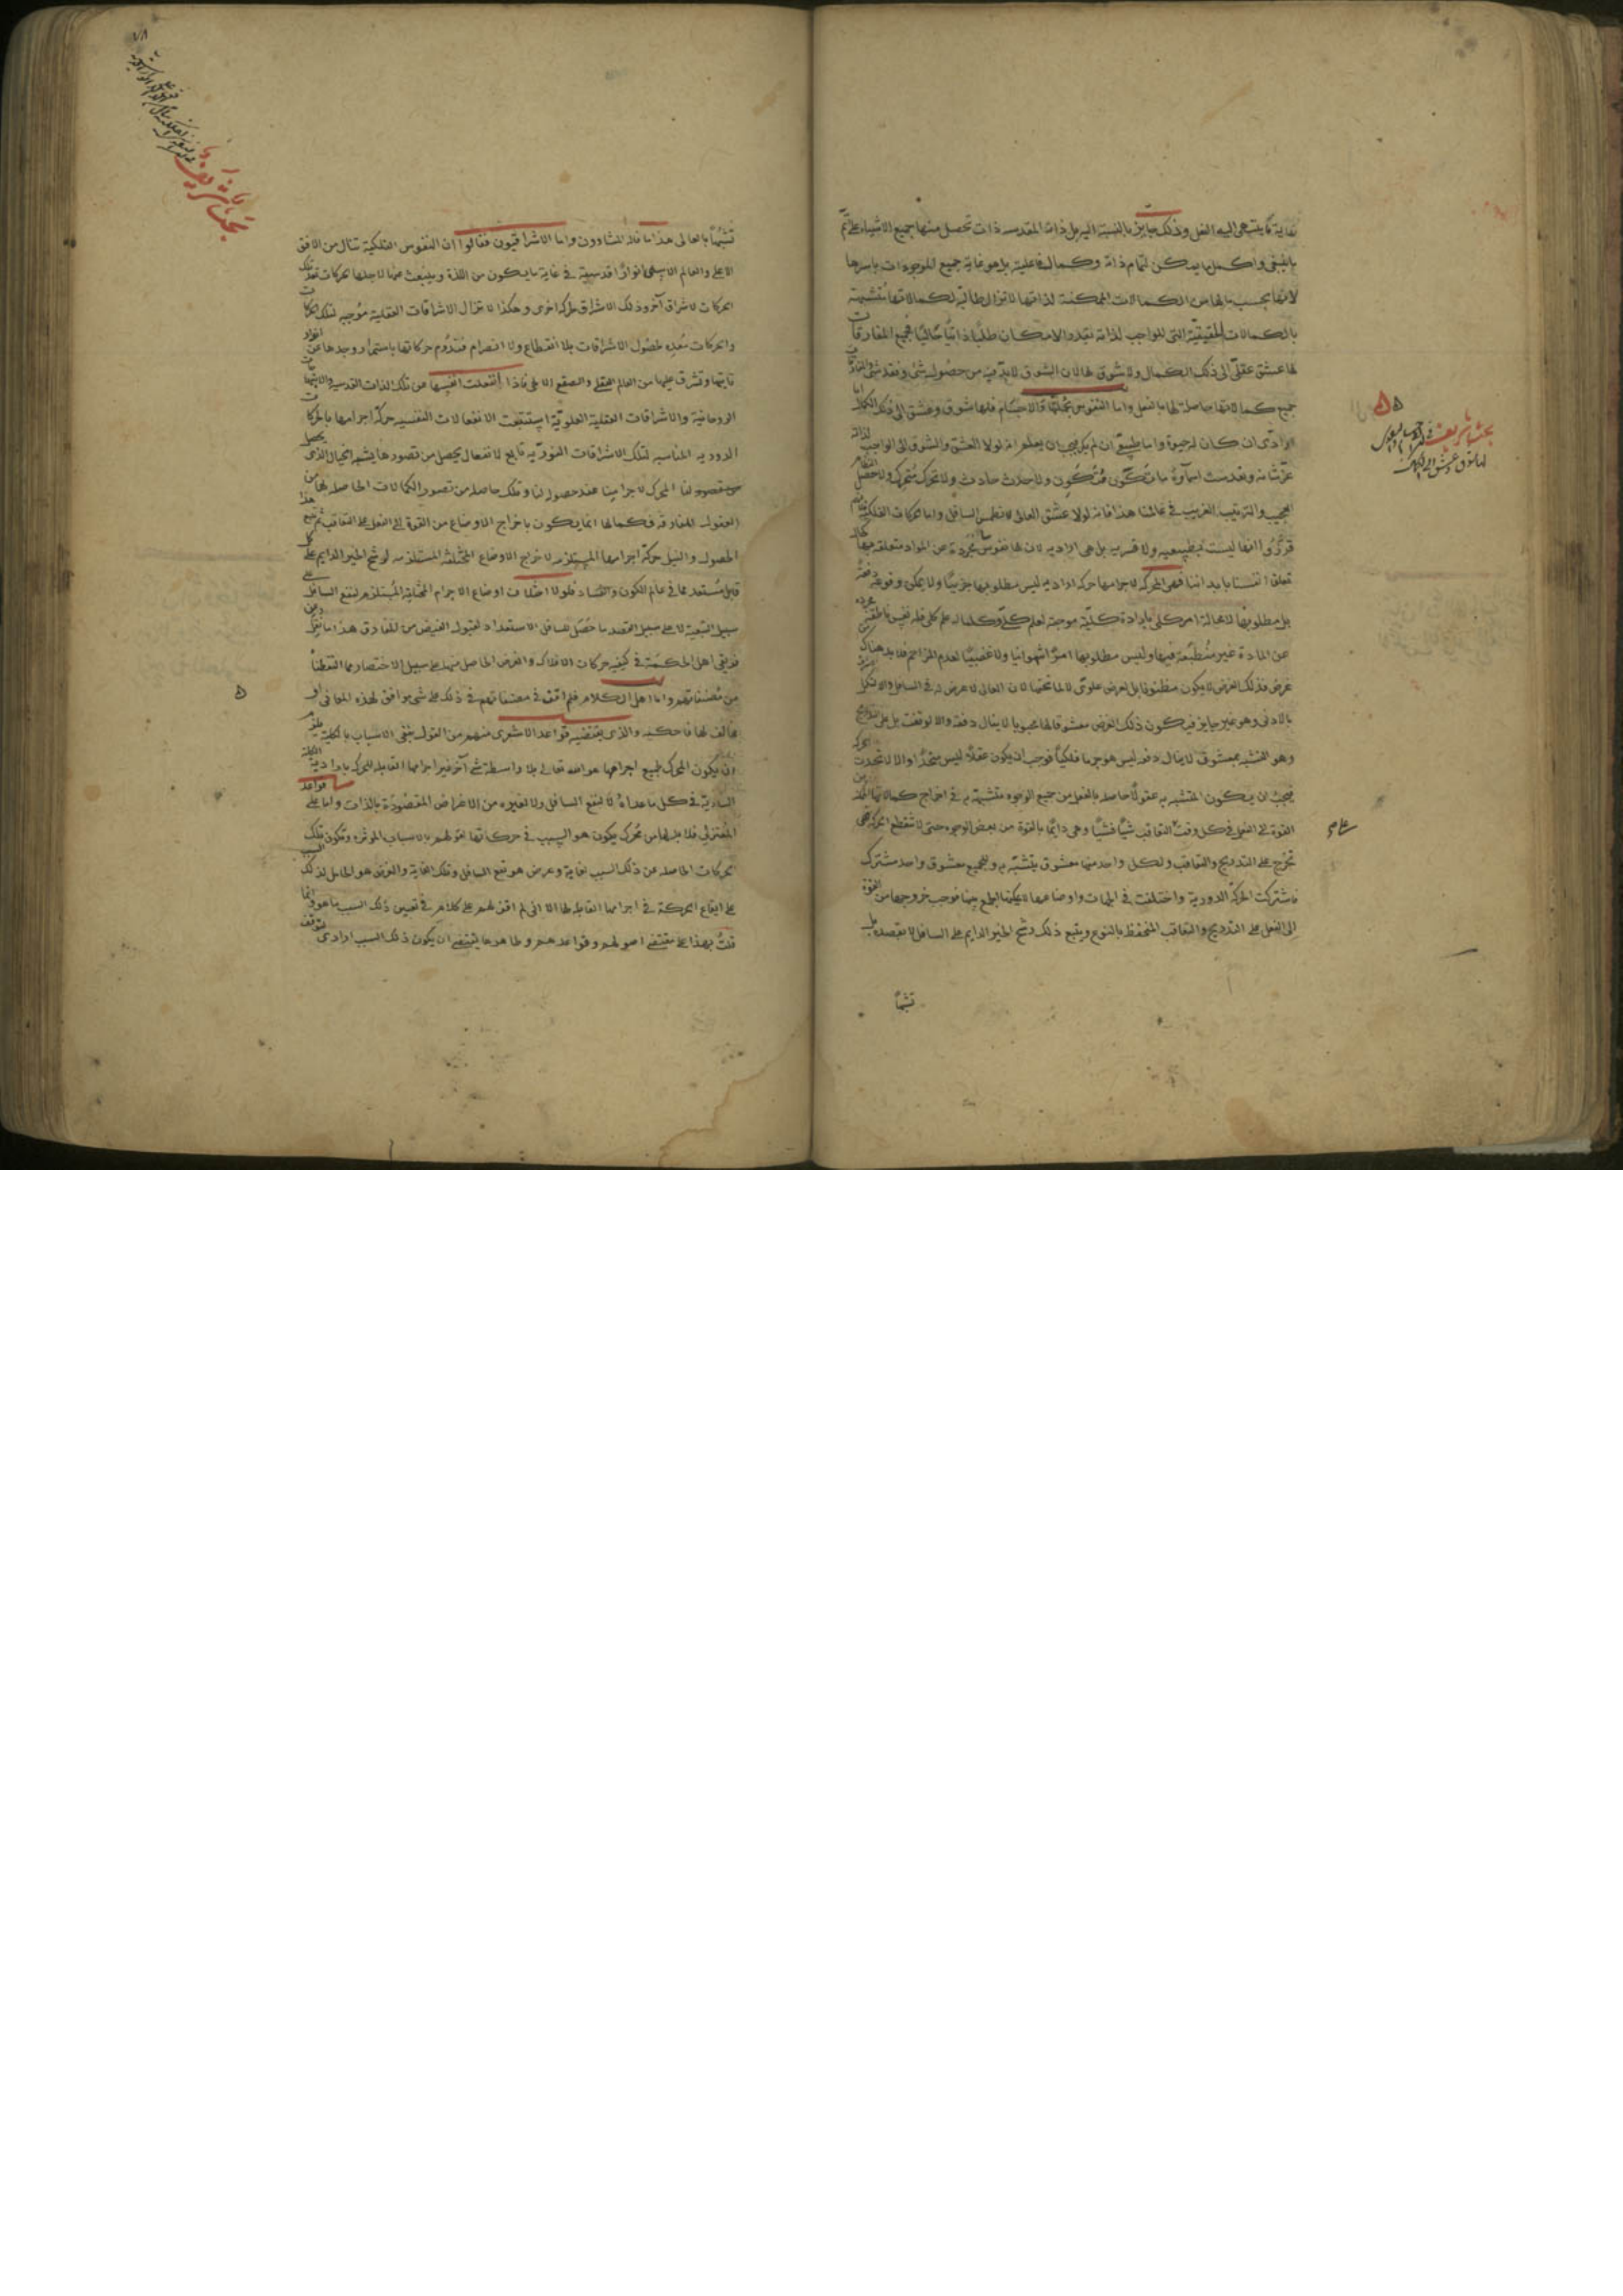 غاية ما ينتهى اليه الفعل وذلك جايز بالنسبة اليه بل ذاته المقدسه ذات تحصل منها جميع الاشياء على اتم
ما ينبغى واكمل ما يمكن لتمام ذاته وكمال فاعليته بل هو غاية جميع الموجودات باسرها
لانها بحسب ما لها من الكمالات الممكنة لذاتها لا تزال طالبة لكمالاتها متشبهة
بالكمالات الحقيقية التى للواجب لذاته بقدر الامكان طلبًا ذاتيًا فجميع المفارقات
لها عشق عقلى الى ذلك الكمال ولا شوق لها لان الشوق لابد فيه من حصول شى وفقد شى والمفارقات
جميع كمالاتها حاصلة لها بالفعل واما النفوس بجملتها والاجسام فلها شوق وعشق الى ذلك الكمال اما
ارادى ان كان له حيوة واما طبيعى ان لم يكن يجب ان يعلم انه لولا العشق والشوق الى الواجب لذاته
عز شانه وتقدست اسماؤه ما تكون متكون ولا حدث حادث ولا تحرك متحرك ولا حصل النظام
العجيب والترتيب الغريب فى عالمنا هذا فانه لولا عشق العالى لانطمس السافل واما حركات الفلكية فقد
قرروا انها ليست طبيعيه ولا قسريه بل هى اراديه لان لها نفوسا مجردة عن المواد متعلقه بها كما
تعلق انفسنا بابداننا فهى المحركه لاجرامها حركه اراديه ليس مطلوبها جزئيًا ولا يمكن وقوعه دفعة
بل مطلوبها لا محالة امر كلى بارادة كلية موجبة لعلم كلى وكلما له علم كلى فله نفس ناطقة مجرده
عن المادة غير منطبعة فيها وليس مطلوبها امرًا شهوانيا ولا غضبيًا لعدم المزاحم فلا بد هناك من
غرض وذلك الغرض لا يكون مظنونا بل لغرض علوى لا لما تحتها لان العالى لا غرض له فى السافل والا لاستكمل
بالادنى وهو غير جايز فيكون ذلك الغرض معشوقا لها محبوبا لا ينال دفعة والا لوقفت بل على التدريج
وهو التشبه بمعشوق لا ينال دفعه ليس هو جرما فلكيًا فوجب ان يكون عقلًا ليس متحدًا والا لاتحدت الحركه
فيجب ان يكون المتشبه به عقولًا حاصله بالفعل من جميع الوجوه متشبهة به فى اخراج كمالاتها من
القوة الى الفعل فى كل وقت التعاقب شيًا فشيًا وهى دائما بالقوة من بعض الوجوه حتى لا تنقطع الحركه فهى
تخرج على التدريج والتعاقب ولكل واحد منها معشوق يتشبه به وللجميع معشوق واحد مشترك
فاشتركت الحركة الدورية واختلفت فى الجهات واوضاعها لا يمكنها الجمع بينها فوجب خروجها من القوة
الى الفعل على التدريج والتعاقب المنحفظ بالنوع ويتبع ذلك رشح الخير الدايم على السافل لا بقصده بل
تشبهًا
بحث شريف
تشبهًا بالعالى هذا ما قاله المشاوون واما الاشراقيون فقالوا ان النفوس الفلكية تنال من الافق
الاعلى والعالم الاسنى انوارًا قدسية فى غاية ما يكون من اللذة وينبعث عنها لاجلها حركات تعد تلك
الحركات لاشراق آخر وذلك الاشراق لحركه اخرى وهكذا لا تزال الاشراقات العقلية موجبه لتلك الحركات
والحركات معده لحصول الاشراقات بلا انقطاع ولا انصرام فتدوم حركاتها باستمرار وجدها عن انوار
تاتيها وتشرق عليها من العالم العقلى والصقع الاعلى فاذا انفعلت انفسها عن تلك اللذات القدسيه والابتهاجات
الروحانية والاشراقات العقلية العلوية استتبعت الانفعالات النفسيه حركة اجرامها بالحركات
الدوريه المناسبه لتلك الاشراقات النوريه تابع لانفعال يحصل من تصورها يشبه الخيال الذى يحصل
لنا المحرك لاجرامنا عند حصوله لنا وتلك حاصله من تصور الكمالات الحاصله لها من
العقول المفارقه فكمالها انما يكون باخراج الاوضاع من القوة الى الفعل على التعاقب ثم يتبع هذا
الحصول والنيل حركة اجرامها المستلزمه لاخراج الاوضاع المختلفة المستلزمه لرشح الخير الدايم على كل
قابل مستعد مما فى عالم الكون والفساد فلولا اختلاف اوضاع الاجرام العلوية المستلزم لنفع السافل على
سبيل التبعية لا على سبيل القصد ما حصل للسافل الاستعداد لقبول الفيض من المفارق هذا ما نقل عن
فريقى اهل الحكمة فى كيفيه حركات الافلاك والغرض الحاصل منها على سبيل الاختصار مما التقطناه
من مصنفاتهم واما اهل الكلام فلم اقف فى مصنفاتهم فى ذلك على شى موافق لهذه المعانى او
مخالف لها فاحكيه والذى يقتضيه قواعد الاشعرى منهم من القول بنفى الاسباب بالكلية يلزم
ان يكون المحرك لجميع اجرامها هو الله تعالى بلا واسطة شى آخر غير اجرامها القابله للحركه بارادية الكلية
السارية فى كل ما عداه لا لنفع السافل ولا لغيره من الاغراض المقصودة بالذات واما على قواعد
المعتزلى فلا بد لها من محرك يكون هو السبب فى حركاتها لقولهم بالاسباب الموثره وتكون تلك
الحركات الحاصله عن ذلك السبب لغاية وغرض هو نفع السافل وتلك الغاية والغرض هو الحامل لذلك السبب
على ايقاع الحركة فى اجرامها القابله لها الا انى لم اقف لهم على كلام فى تعيين ذلك السبب ما هو وانما
قلت بهذا على مقتضى اصولهم وقواعدهم وظاهرها يقتضى ان يكون ذلك السبب ارادى
بحث شريف